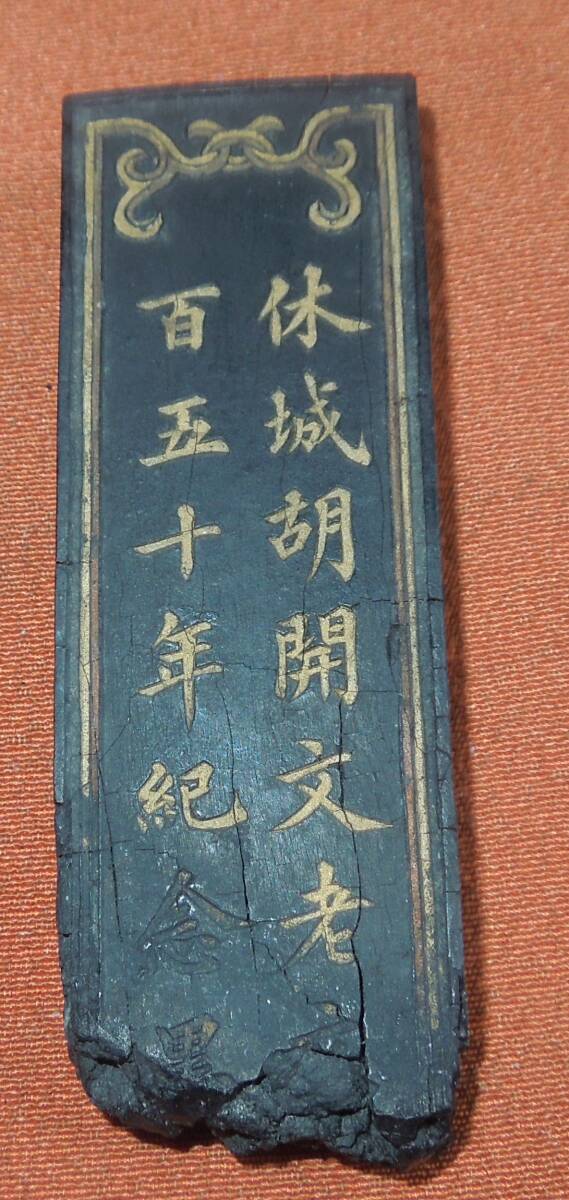 休城胡開文老
百五十年紀念墨